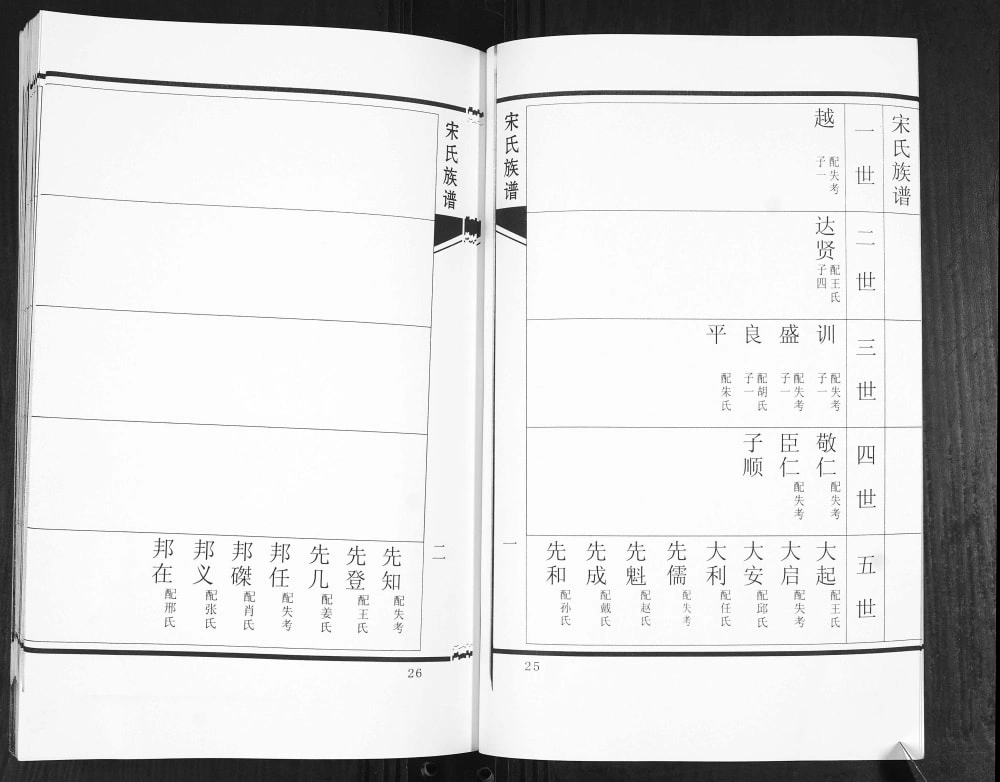 宋氏族谱
一世
越
配失考
子一
二世
达贤
配王氏
子四
三世
训
配失考
子一
盛
配失考
子一
良
配胡氏
子一
平
配朱氏
四世
敬仁
配失考
臣仁
配失考
子顺
五世
大起
配王氏
大启
配失考
大安
配邱氏
大利
配任氏
先儒
配失考
先魁
配赵氏
先成
配戴氏
先和
配孙氏
宋氏族谱
一
25
宋氏族谱
二
先知
配失考
先登
配王氏
先几
配姜氏
邦任
配失考
邦磔
配肖氏
邦义
配张氏
邦在
配邢氏
26